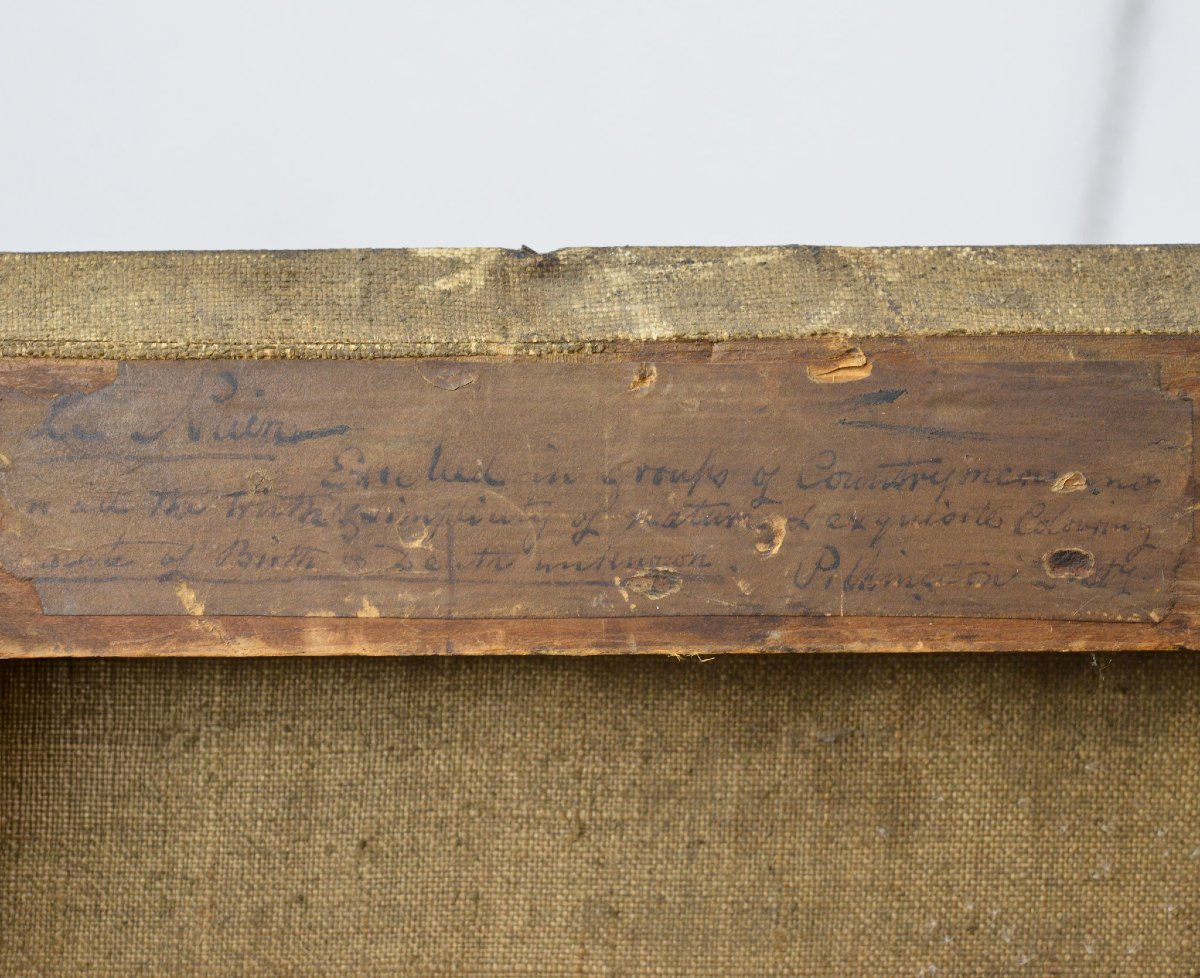 Le Nain
Excelled in groups of Countrymen
the truth & simplicity of nature & exquisite Colouring
of Birth or Death unknown. Pilkington